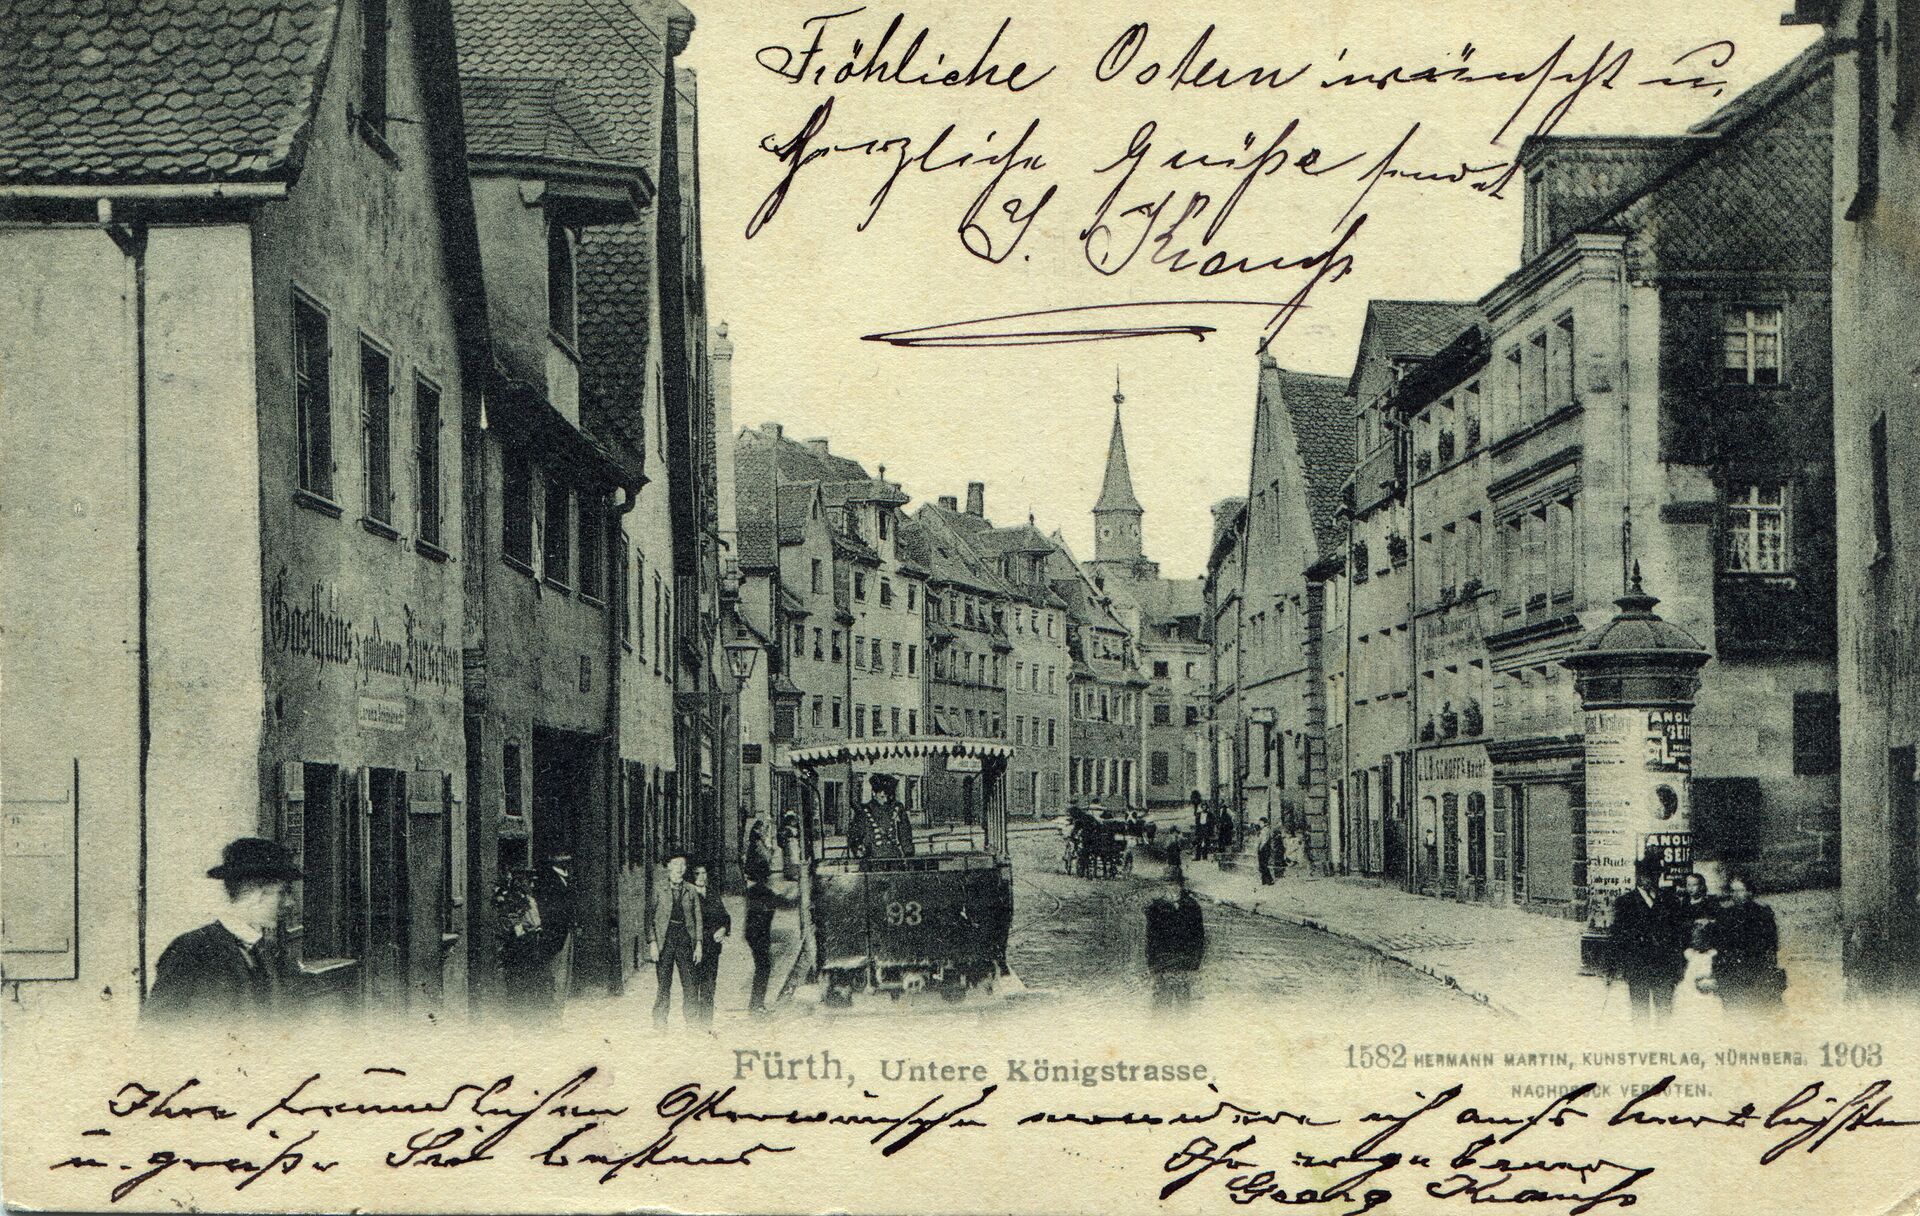 Fröhliche Ostern wünscht u.
Herzliche Grüße sendet
J. Krauß
Gasthaus z. goldenen Hirschen
93
ANGL
SEIF
ANGL
SEIF
Fürth, Untere Königstrasse.
1582 HERMANN MARTIN, KUNSTVERLAG, NÜRNBERG. 1903
NACHDRUCK VERBOTEN.
Ihre freundlichen Osterwünsche erwidere ich aufs herzlichste
u. grüße Sie bestens
Ihr ergebener
Georg Krauß